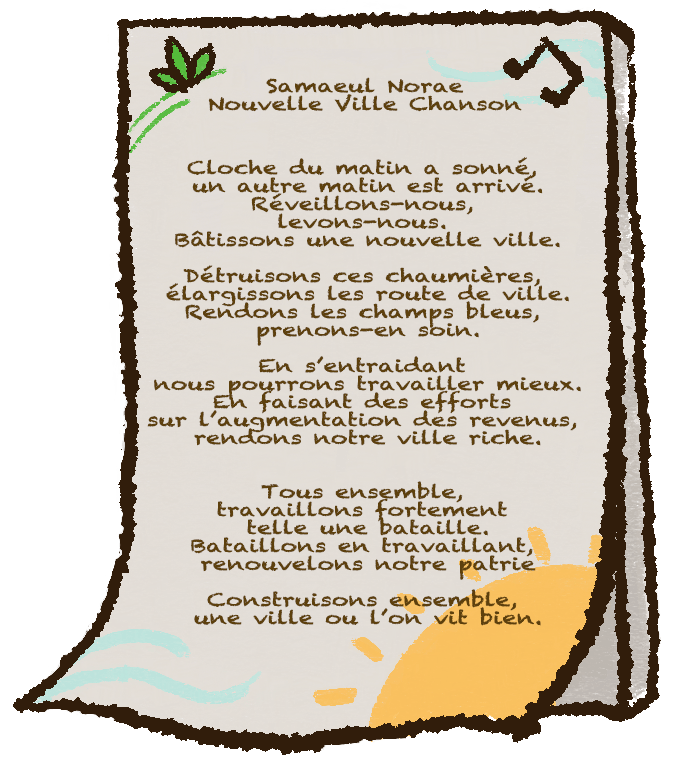 Samaeul Norae
Nouvelle Ville Chanson
Cloche du matin a sonné,
un autre matin est arrivé.
Réveillons-nous,
levons-nous.
Bâtissons une nouvelle ville.
Détruisons ces chaumières,
élargissons les route de ville.
Rendons les champs bleus,
prenons-en soin.
En s’entraidant
nous pourrons travailler mieux.
En faisant des efforts
sur l’augmentation des revenus,
rendons notre ville riche.
Tous ensemble,
travaillons fortement
telle une bataille.
Bataillons en travaillant,
renouvelons notre patrie
Construisons ensemble,
une ville ou l’on vit bien.